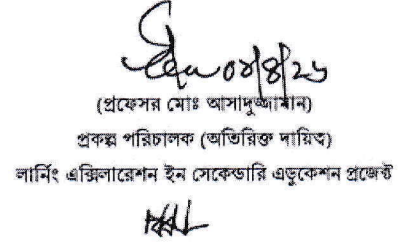 ০৮/৪/২৬
(প্রফেসর মোঃ আসাদুজ্জামান)
প্রকল্প পরিচালক (অতিরিক্ত দায়িত্ব)
লার্নিং এক্সিলারেশন ইন সেকেন্ডারি এডুকেশন প্রজেক্ট